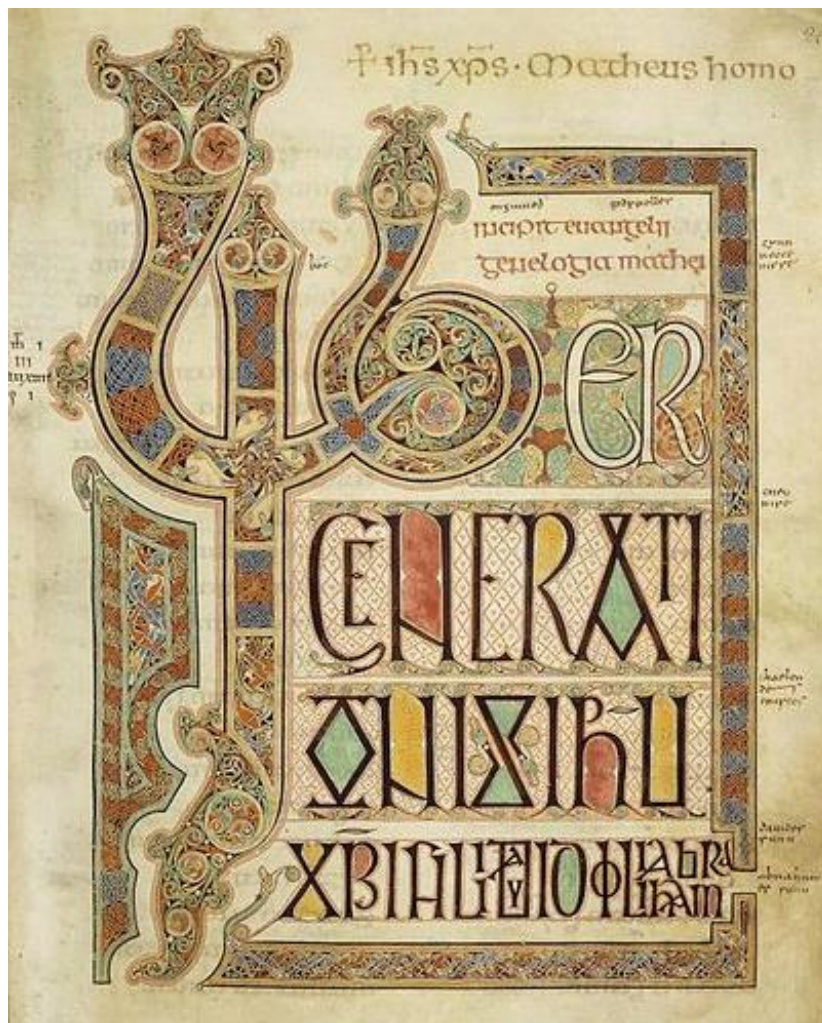 + ihs xps · Matheus homo
onginneð godspelles
incipit euangelii
genelogia mathei
LIBER
GENERATI
ONIS IHU
XPI FILII DAVID FILII ABRAHAM